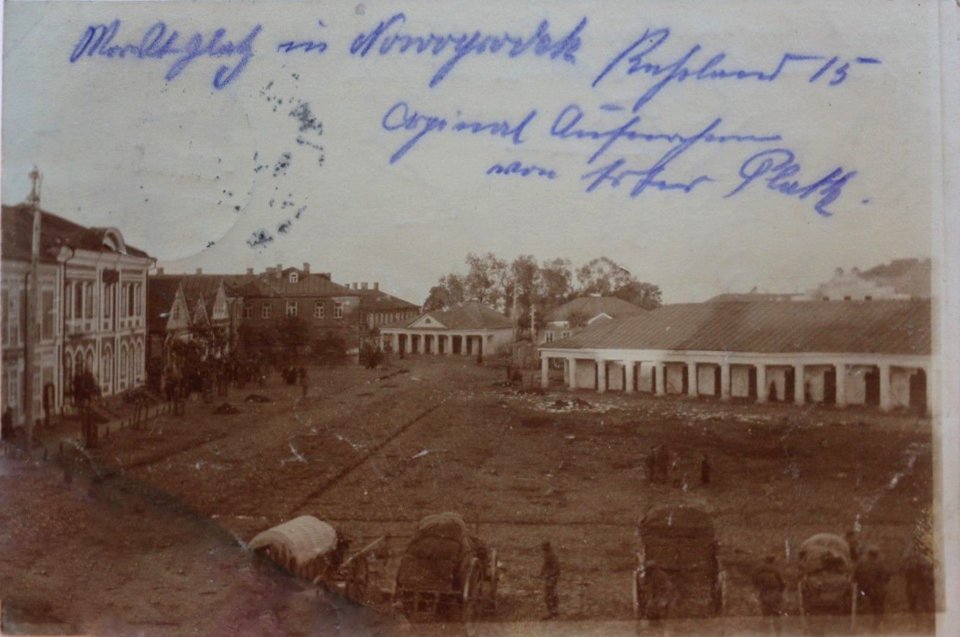 Marktplatz in Nowogrodek Russland 15
Orginal Aufnahme
von Platz.